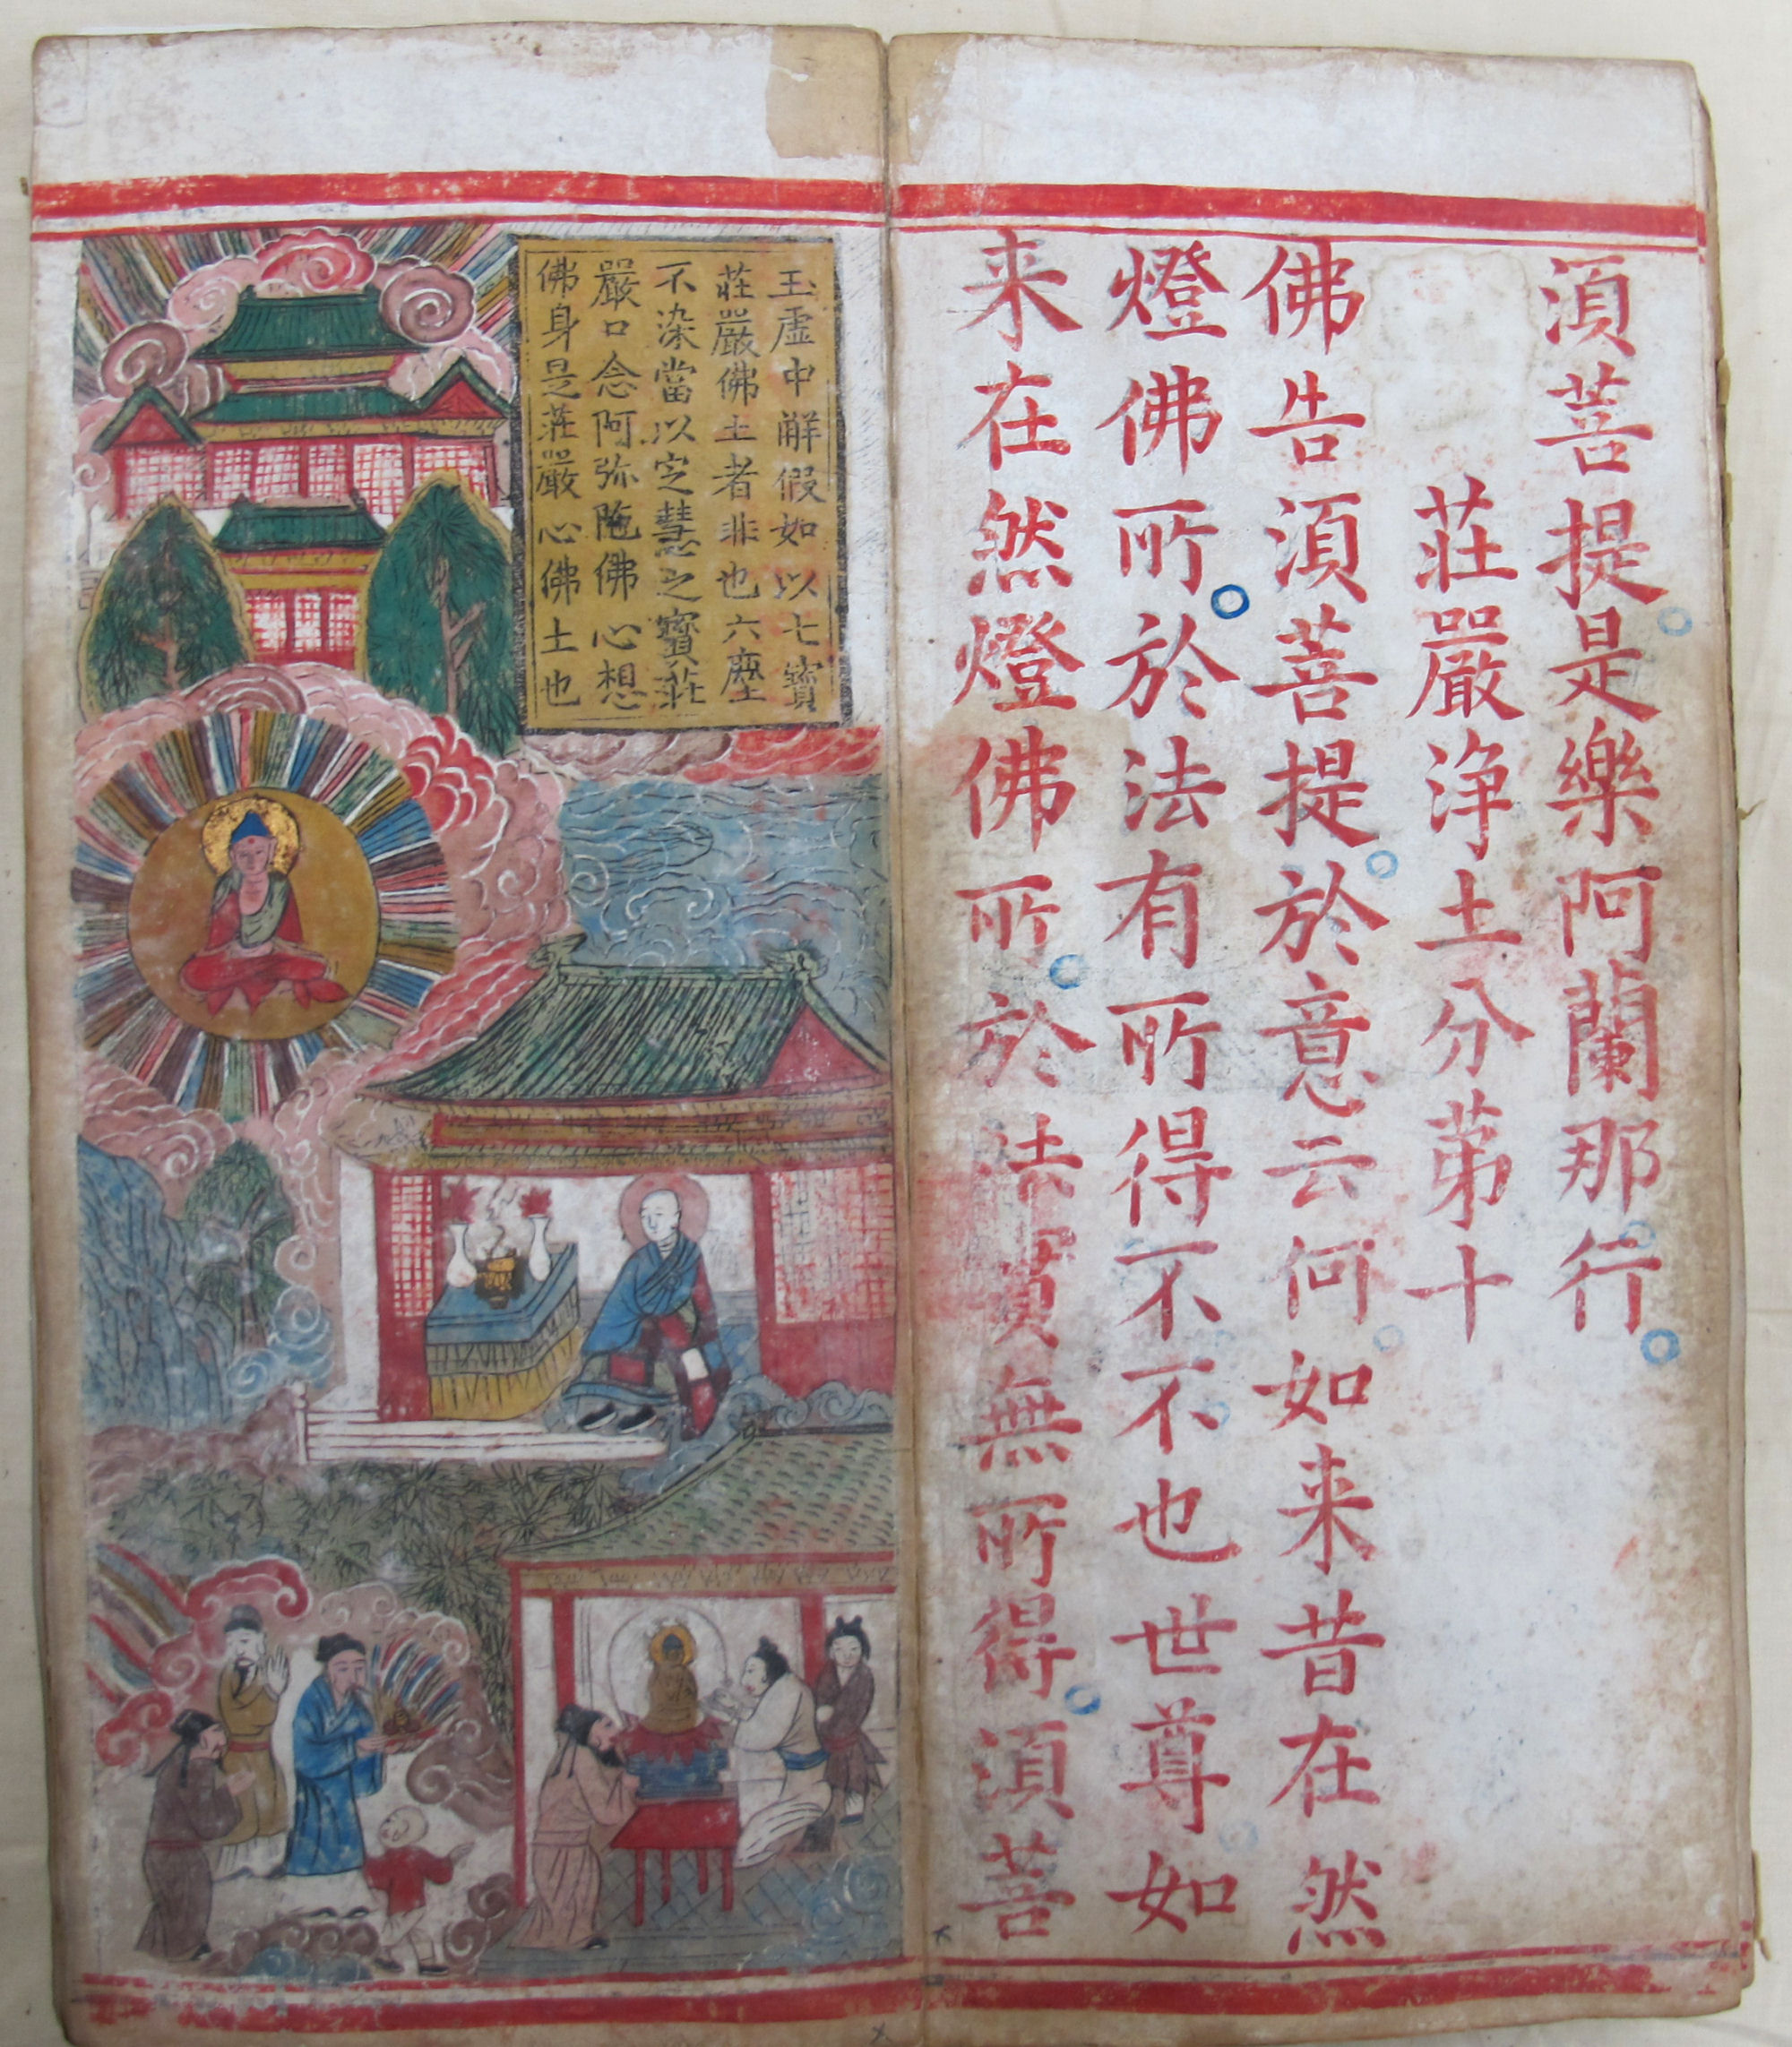 湏菩提是樂阿蘭那行
莊嚴淨土分苐十
佛告湏菩提於意云何如来昔在然
燈佛所於法有所得不不也世尊如
来在然燈佛所於法實無所得湏菩
玉虛中解假如以七寶
莊嚴佛土者非也六塵
不染當以定慧之寶莊
嚴口念阿弥陁佛心想
佛身是莊嚴心佛土也